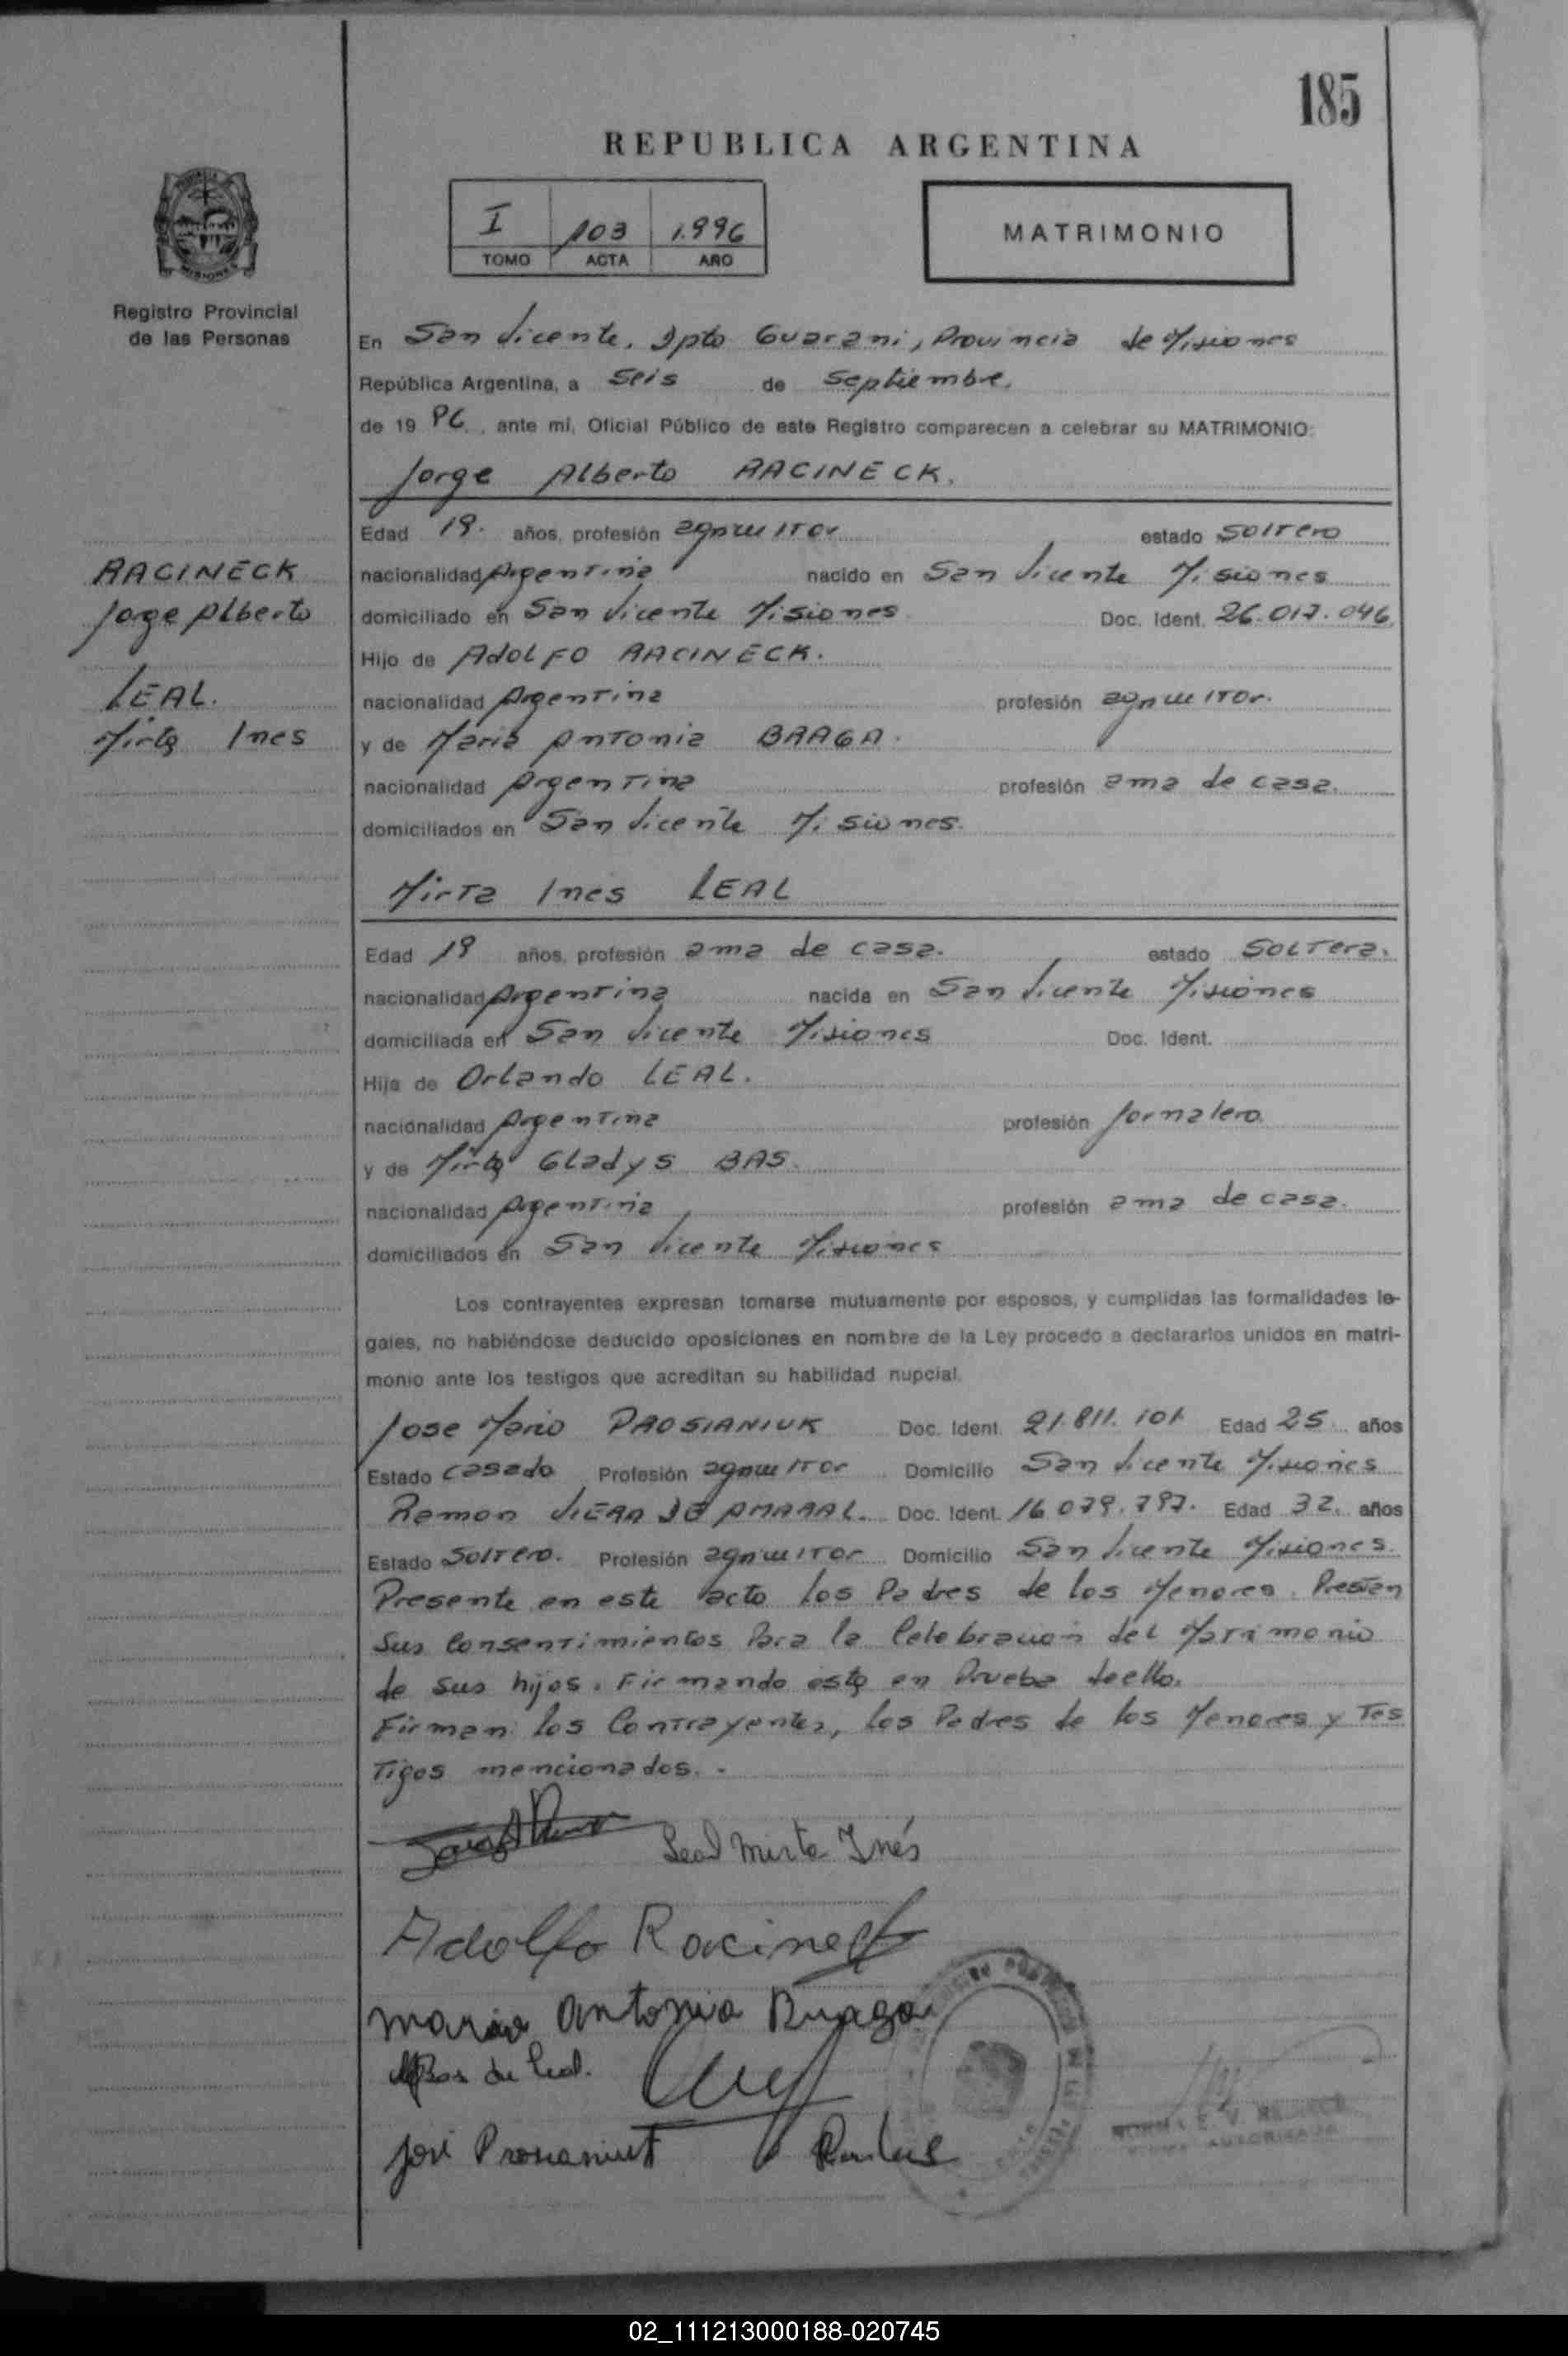 185
REPUBLICA ARGENTINA
I 103 1.996
TOMO ACTA AÑO
MATRIMONIO
Registro Provincial
de las Personas
En San Vicente, Dpto Guarani, Provincia de Misiones
República Argentina, a Seis de Septiembre.
de 19 96, ante mí, Oficial Público de este Registro comparecen a celebrar su MATRIMONIO:
Jorge Alberto RACINECK.
Edad 19. años, profesión agricultor estado Soltero
RACINECK
nacionalidad Argentina nacido en San Vicente Misiones
Jorge Alberto
domiciliado en San Vicente Misiones Doc. Ident. 26.017.046.
Hijo de ADOLFO RACINECK.
LEAL.
nacionalidad Argentina profesión agricultor.
Mirta Ines
y de Maria Antonia BRAGA.
nacionalidad Argentina profesión ama de casa.
domiciliados en San Vicente Misiones.
Mirta Ines LEAL
Edad 19 años, profesión ama de casa. estado SOLTera.
nacionalidad Argentina nacida en San Vicente Misiones
domiciliada en San Vicente Misiones Doc. Ident.
Hija de Orlando LEAL.
nacionalidad Argentina profesión Jornalero.
y de Mirta Gladys BAS.
nacionalidad Argentina profesión ama de casa.
domiciliados en San Vicente Misiones
Los contrayentes expresan tomarse mutuamente por esposos, y cumplidas las formalidades le-
gales, no habiéndose deducido oposiciones en nombre de la Ley procedo a declararlos unidos en matri-
monio ante los testigos que acreditan su habilidad nupcial.
Jose Mario PROSIANIUK Doc. Ident. 21.811.101 Edad 25 años
Estado casado Profesión agricultor Domicilio San Vicente Misiones
Ramon VIERA DE AMARAL. Doc. Ident. 16.079.797. Edad 32. años
Estado Soltero. Profesión agricultor Domicilio San Vicente Misiones.
Presente en este acto los Padres de los Menores. Prestan
sus Consentimientos Para la Celebracion del Matrimonio
de sus hijos. Firmando esta en Prueba de ello.
Firman: los Contrayentes, los Padres de los Menores y Tes
Tigos mencionados. -
Leal Mirta Inés
Adolfo Racineck
Maria Antonia Braga
Bas de Leal.
José Prosianiuk
NORMA E. V.
FIRMA AUTORIZADA
02_111213000188-020745